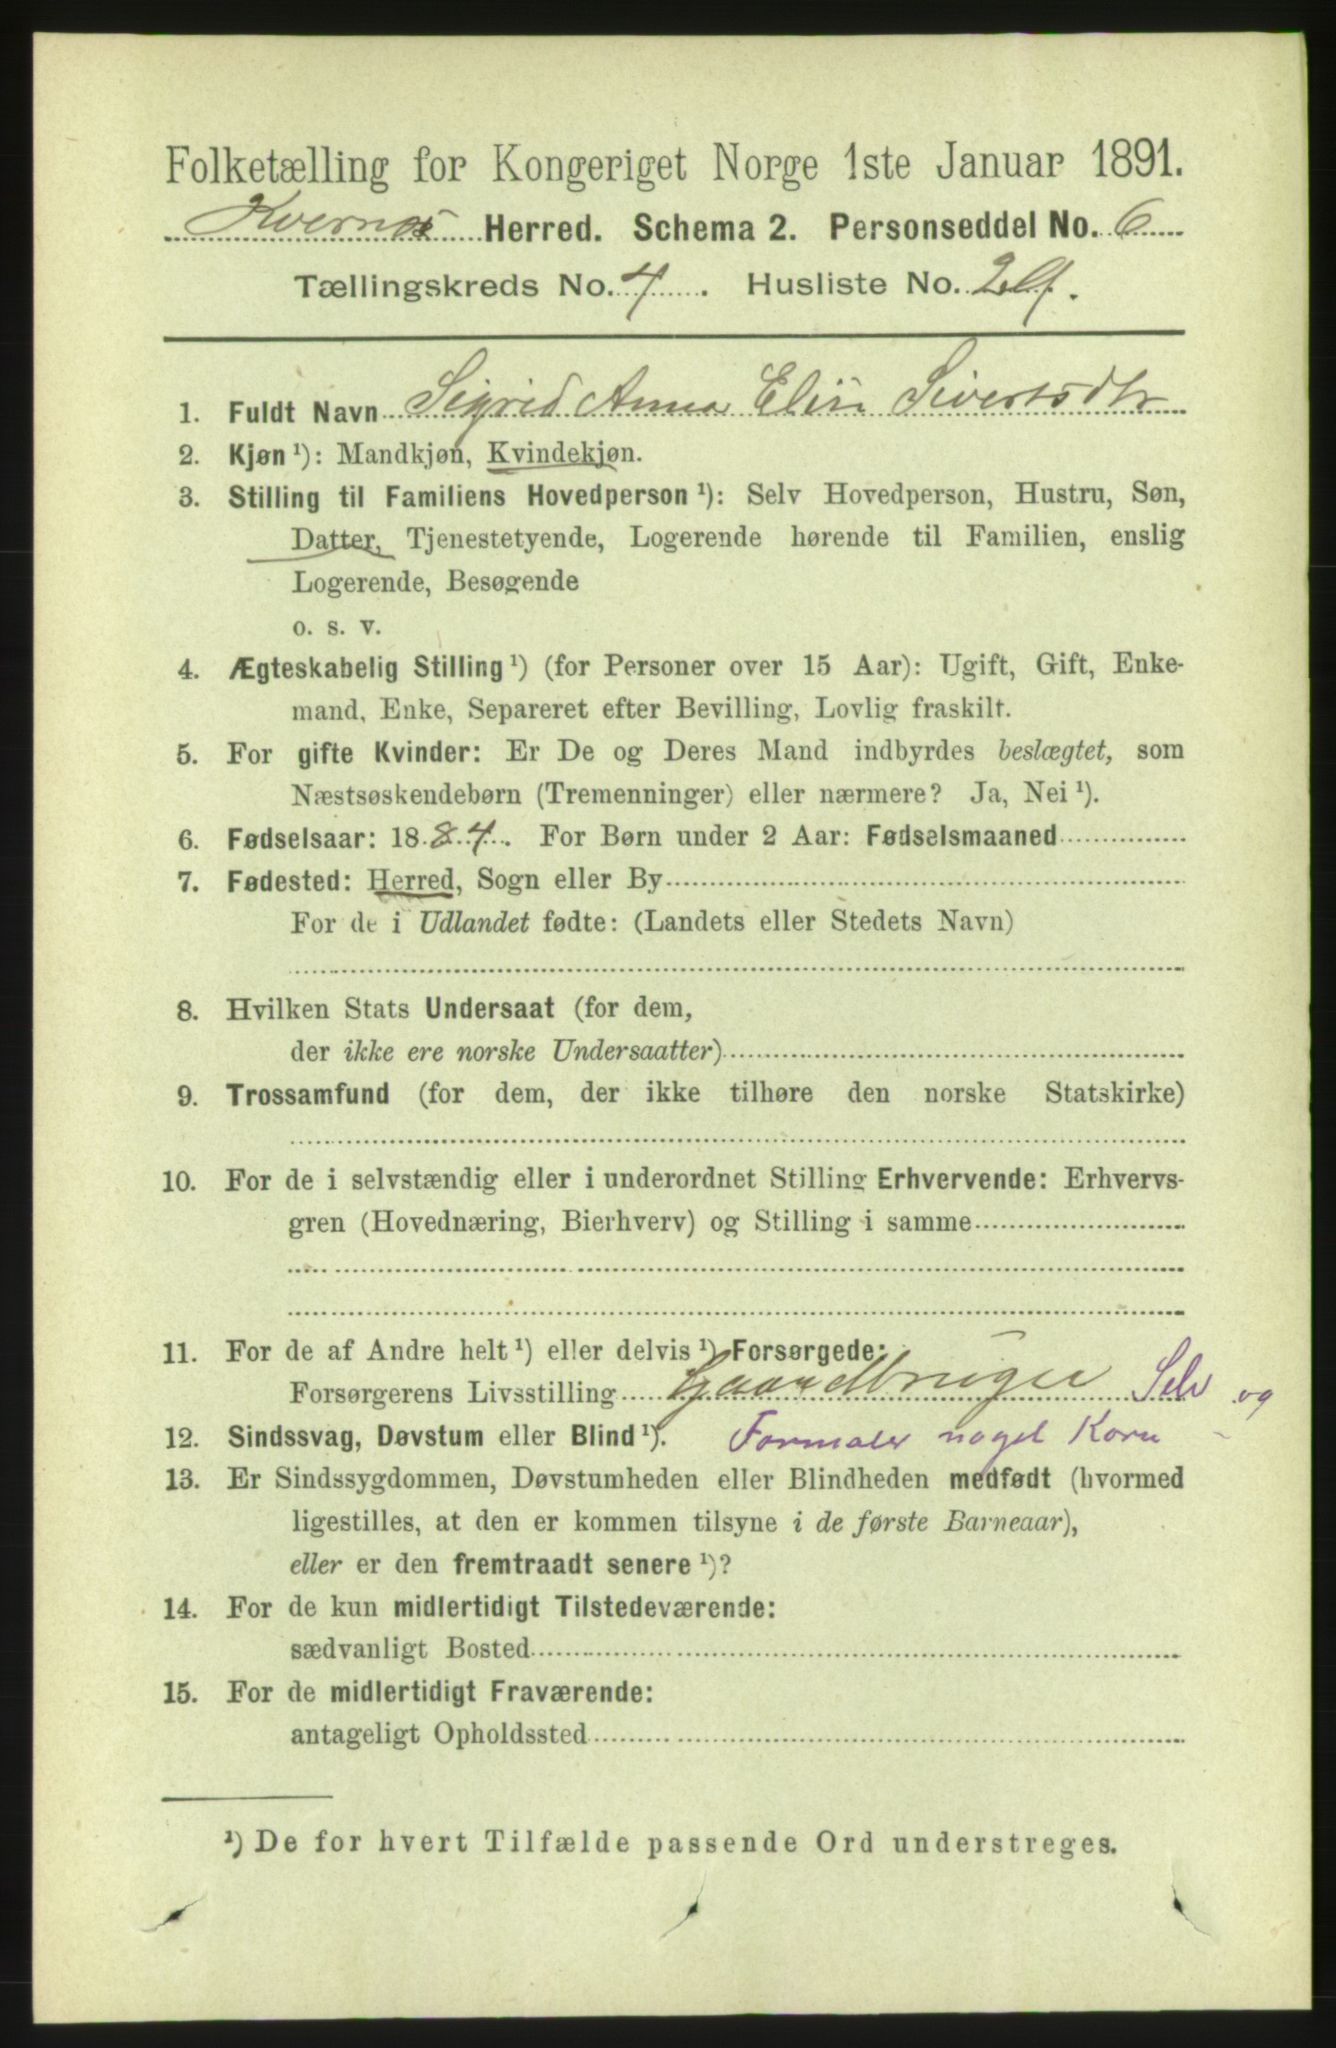 Folketælling for Kongeriget Norge 1ste Januar 1891.
Kvernæs Herred. Schema 2. Personseddel No. 6
Tællingskreds No. 4. Husliste No.
1. Fuldt Navn Sigrid Anna Elin Sivertsdtr
2. Kjøn¹): Mandkjøn, Kvindekjøn.
3. Stilling til Familiens Hovedperson¹): Selv Hovedperson, Hustru, Søn,
Datter, Tjenestetyende, Logerende hørende til Familien, enslig
Logerende, Besøgende
o. s. v.
4. Ægteskabelig Stilling¹) (for Personer over 15 Aar): Ugift, Gift, Enke-
mand, Enke, Separeret efter Bevilling, Lovlig fraskilt.
5. For gifte Kvinder: Er De og Deres Mand indbyrdes beslægtet, som
Næstsøskendebørn (Tremenninger) eller nærmere? Ja, Nei¹).
6. Fødselsaar: 1884. For Børn under 2 Aar: Fødselsmaaned
7. Fødested: Herred, Sogn eller By
For de i Udlandet fødte: (Landets eller Stedets Navn)
8. Hvilken Stats Undersaat (for dem,
der ikke ere norske Undersaatter)
9. Trossamfund (for dem, der ikke tilhøre den norske Statskirke)
10. For de i selvstændig eller i underordnet Stilling Erhvervende: Erhvervs-
gren (Hovednæring, Bierhverv) og Stilling i samme
11. For de af Andre helt¹) eller delvis¹) Forsørgede:
Forsørgerens Livsstilling Gaardbruger Selv og
12. Sindssvag, Døvstum eller Blind¹). Formaler noget Korn
13. Er Sindssygdommen, Døvstumheden eller Blindheden medfødt (hvormed
ligestilles, at den er kommen tilsyne i de første Barneaar),
eller er den fremtraadt senere¹)?
14. For de kun midlertidigt Tilstedeværende:
sædvanligt Bosted
15. For de midlertidigt Fraværende:
antageligt Opholdssted
¹) De for hvert Tilfælde passende Ord understreges.